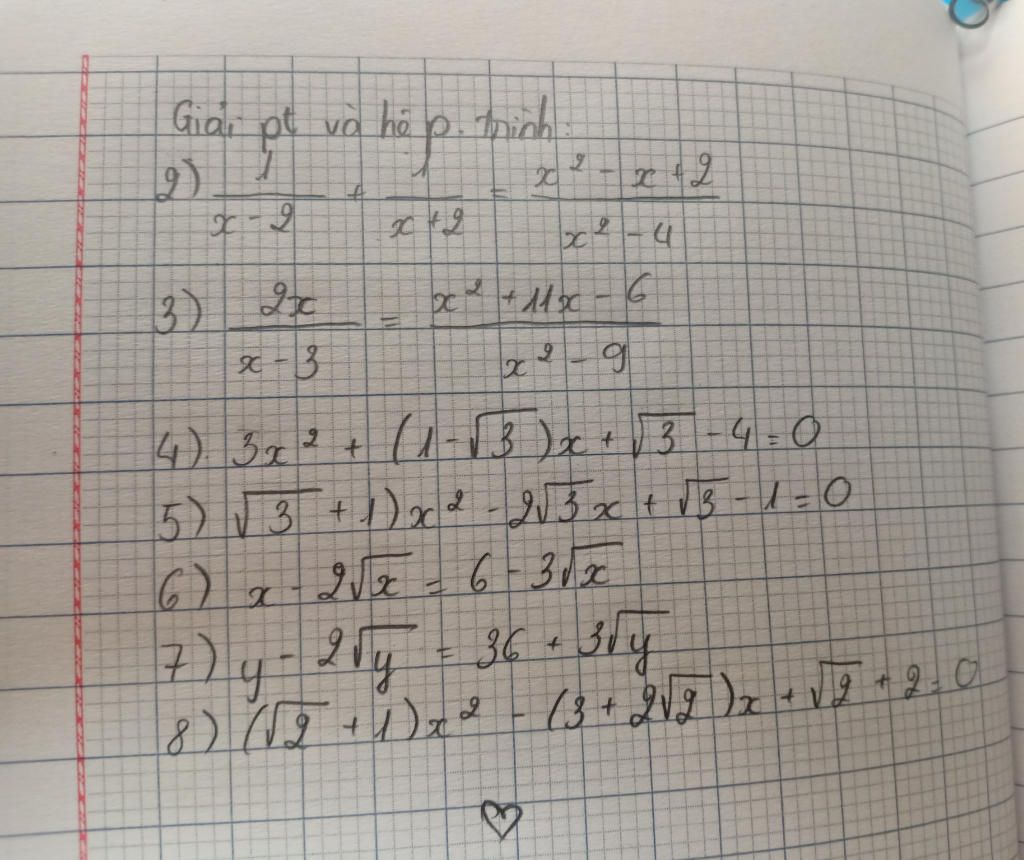 Giải pt và hệ p. trình:
2) 1/(x - 2) + 1/(x + 2) = (x² - x + 2)/(x² - 4)
3) 2x/(x - 3) = (x² + 11x - 6)/(x² - 9)
4). 3x² + (1 - √3)x + √3 - 4 = 0
5) √3 + 1)x² - 2√3x + √3 - 1 = 0
6) x - 2√x = 6 - 3√x
7) y - 2√y = 36 + 3√y
8) (√2 + 1)x² - (3 + 2√2)x + √2 + 2 = 0